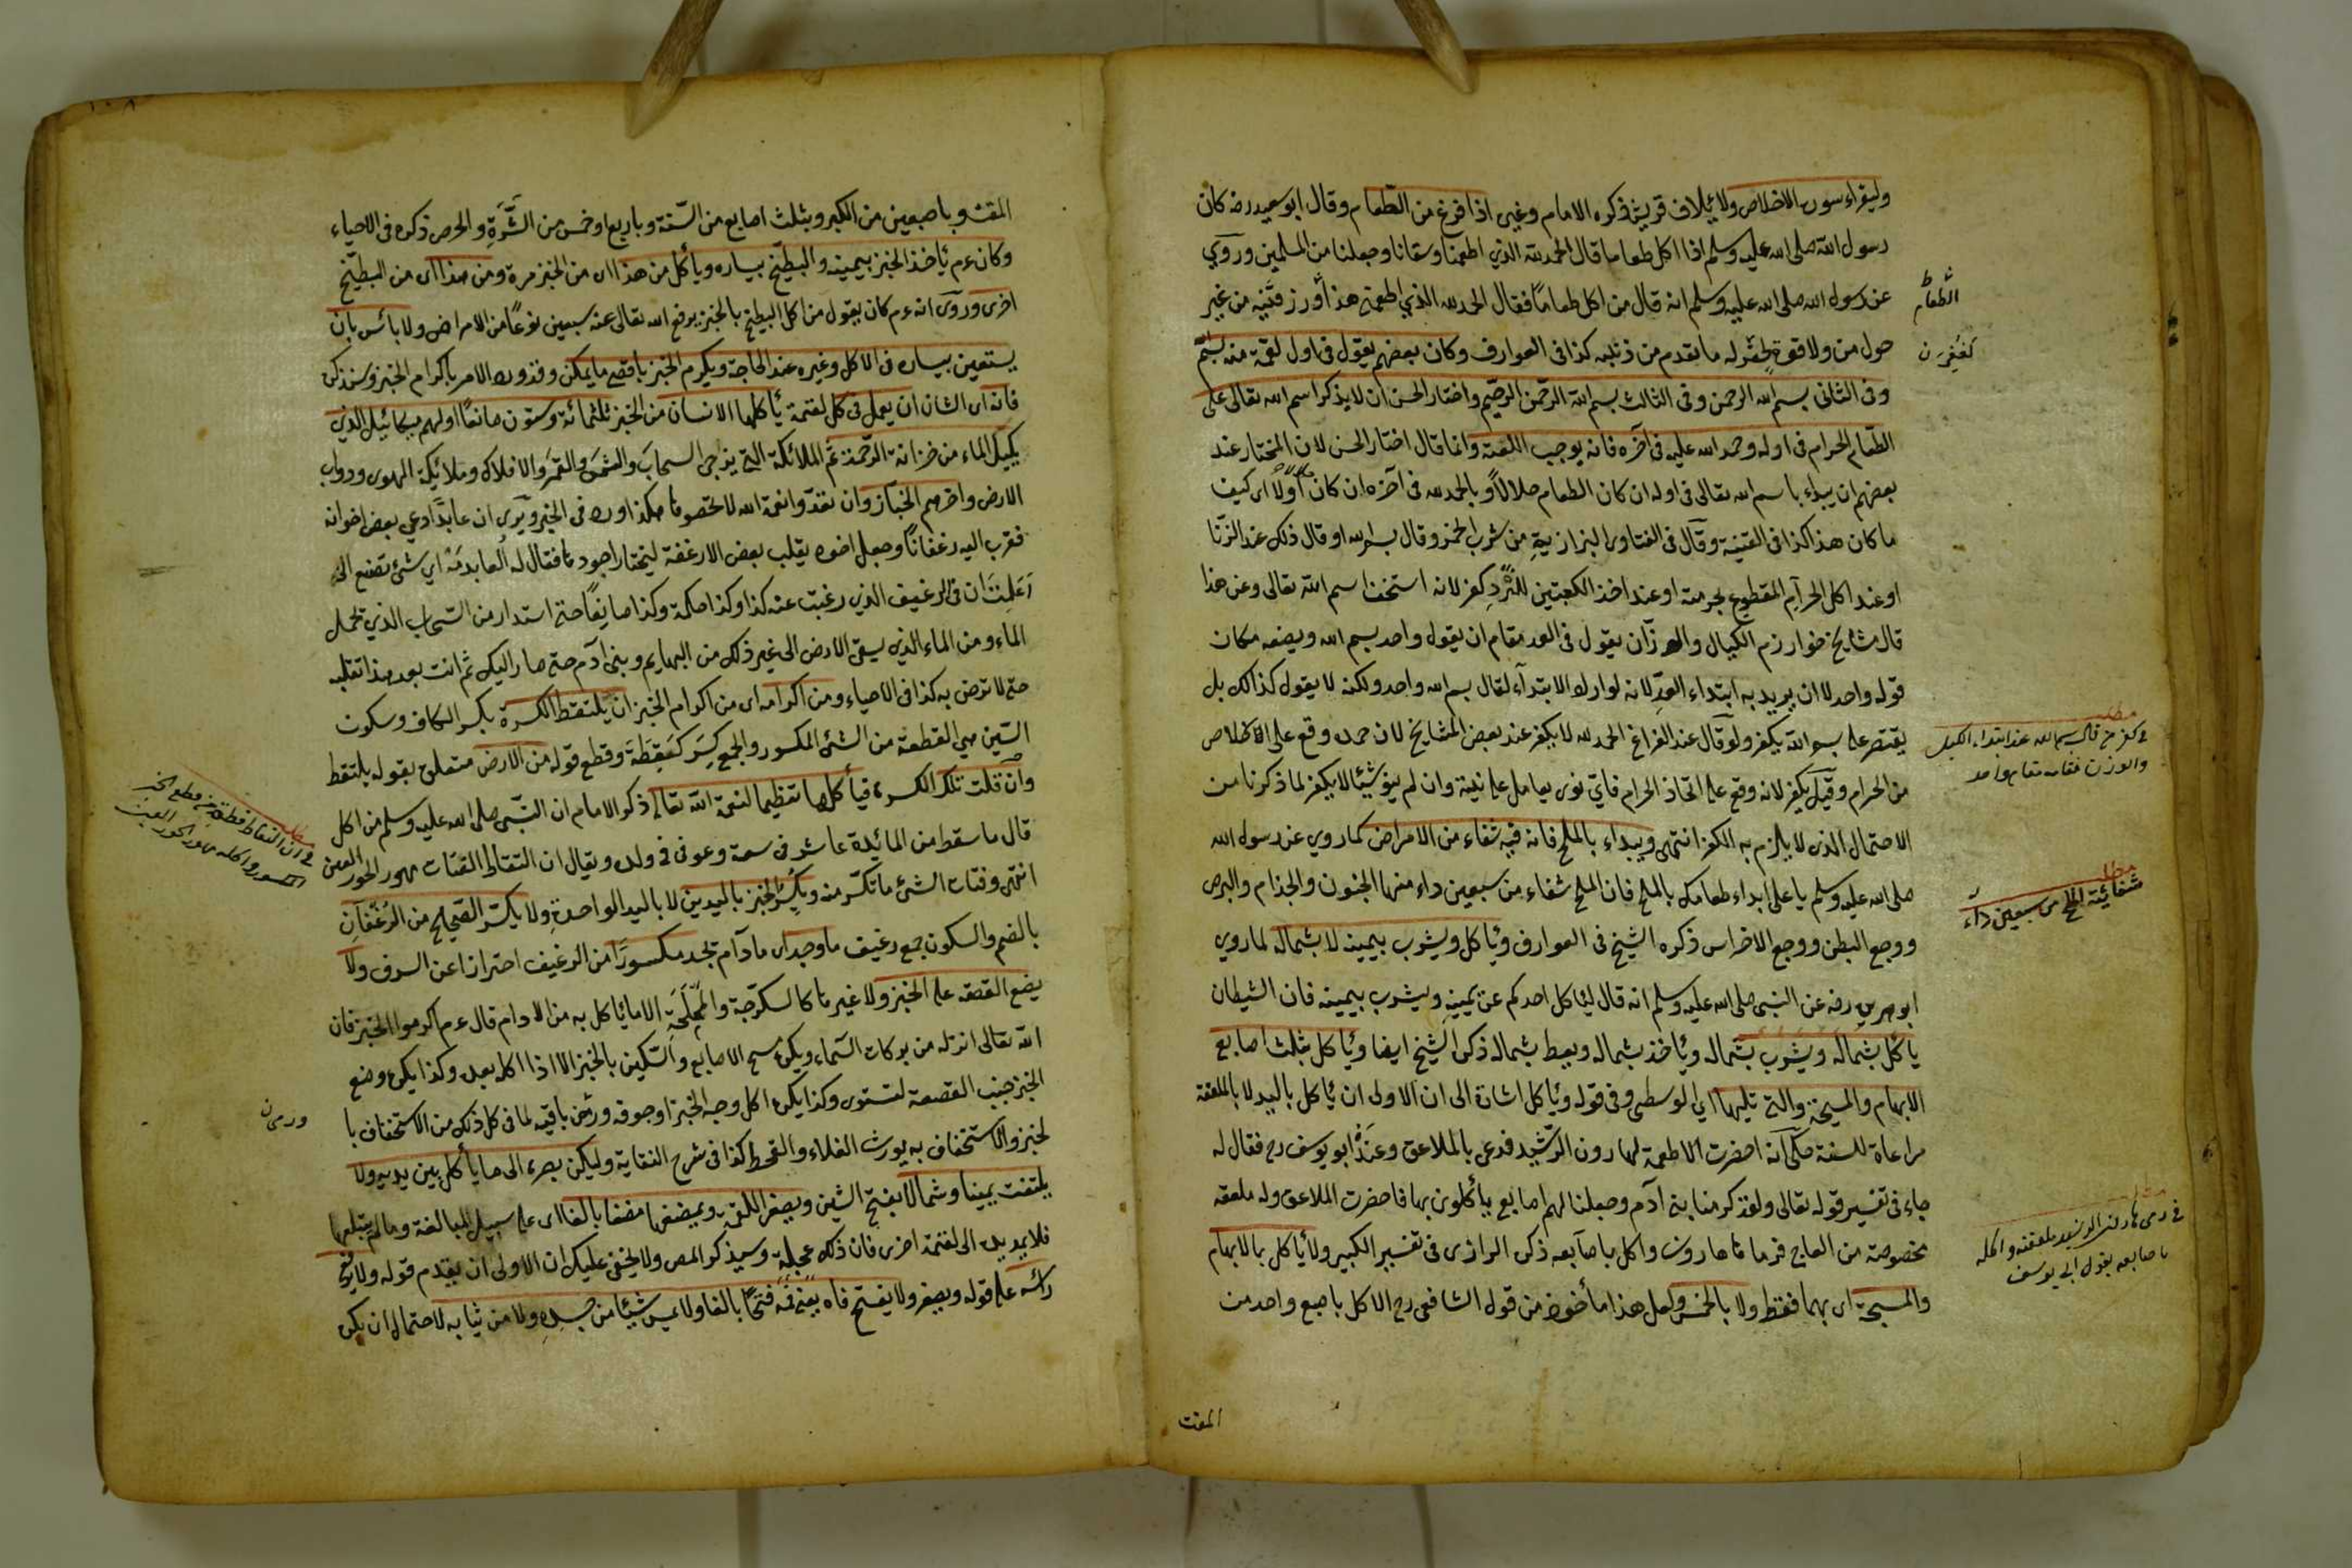 وليقراء سورة الاخلاص ولا يلاف قريش ذكره الامام وغيره اذا فرغ من الطعام وقال ابو سعيد رضه كان
رسول الله صلى الله عليه وسلم اذا اكل طعاما قال الحمد لله الذي اطعمنا وسقانا وجعلنا من المسلمين وروي
عن رسول الله صلى الله عليه وسلم انه قال من اكل طعاماً فقال الحمد لله الذي اطعمني هذا ورزقنيه من غير
الطعام
حول مني ولا قوة غفر له ما تقدم من ذنبه كذا في العوارف وكان بعضهم يقول في اول لقمة منه بسم
وفى الثاني بسم الله الرحمن وفى الثالث بسم الله الرحمن الرحيم واختار الحسن ان لا يذكر اسم الله تعالى على
الطعام الحرام فى اوله وحمد الله عليه فى آخره فانه يوجب اللعنة وانما قال اختار الحسن لان المختار عند
بعضهم ان يبداء باسم الله تعالى فى اوله ان كان الطعام حلالاً وبالحمد لله فى آخره ان كان اولا اى كيف
ما كان هذا كذا فى القنية وقال فى الفتاوى البزازية من شرب الخمر وقال بسم الله او قال ذلك عند الزنا
او عند اكل الحرام المقطوع بحرمته او عند اخذ الكعبتين للنرد كفر لانه استخف اسم الله تعالى وعن هذا
قال مشايخ خوارزم الكيال والوزان يقول فى العد مقام ان يقول واحد بسم الله ويضعه مكان
قوله واحد لا ان يريد به ابتداء العد لانه لو اراد الابتداء لقال بسم الله واحد ولكنه لا يقول كذالك بل
يقتصر على بسم الله يكفر ولو قال عند الفراغ الحمد لله لا يكفر عند بعض المشايخ لان حمده وقع على الخلاص
مطلب
فى كفر من قال بسم الله عند ابتداء الكيل
والوزن مقامه مقام واحد
من الحرام وقيل يكفر لانه وقع على اتخاذ الحرام فاي نوى يعامل على نيته وان لم ينو شيئا لا يكفر لما ذكرنا من
الاحتمال الذى لا يلزم به الكفر انتهى ويبداء بالملح فانه فيه شفاء من الامراض كما روي عن رسول الله
صلى الله عليه وسلم يا على ابداء طعامك بالملح فان الملح شفاء من سبعين داء منها الجنون والجذام والبرص
مطلب
شفائية الملح من سبعين داء
ووجع البطن ووجع الاضراس ذكره الشيخ فى العوارف ويأكل ويشرب بيمينه لا بشماله لما روى
ابو هريرة رضه عن النبى صلى الله عليه وسلم انه قال ليأكل احدكم عن يمينه ويشرب بيمينه فان الشيطان
يأكل بشماله ويشرب بشماله ويأخذ بشماله ويعطى بشماله ذكره الشيخ ايضا ويأكل بثلث اصابع
الابهام والمسبحة والتى تليها اي الوسطى وفى قوله ويأكل اشارة الى ان الاولى ان يأكل باليد لا بالملعقة
مراعاة للسنة حكى انه احضرت الاطعمة لهارون الرشيد فدعى بالملاعق وعنده ابو يوسف رح فقال له
جاء فى تفسير قوله تعالى ولقد كرمنا بنى آدم وجعلنا لهم اصابع يأكلون بها فاحضرت الملاعق وله ملعقة
مخصوصة من العاج فرماها هارون واكل باصابعه ذكره الرازى فى تفسير الكبير ولا يأكل بالابهام
مطلب
فى رمى هارون الرشيد ملعقته واكله
باصابعه بقول ابى يوسف
والمسبحة اى بهما فقط ولا بالخمس ولعل هذا مأخوذ من قول الشافعى رح الاكل باصبع واحد من
المقت
١٠٨
المقت وباصبعين من الكبر وبثلث اصابع من السنة وباربع او خمس من الشره والحرص ذكره فى الاحياء
وكان عم يأخذ الخبز بيمينه والبطيخ بيساره ويأكل من هذا اى من الخبز مرة ومن هذا اى من البطيخ
اخرى وروى انه عم كان يقول من اكل البطيخ بالخبز يرفع الله تعالى عنه سبعين نوعاً من الامراض ولا بائس بان
يستعين بيساره فى الاكل وغيره عند الحاجة ويكرم الخبز باقصى ما يمكن وقد ورد الامر باكرام الخبز وسنذكره
فانه اى الشان ان يعمل فى كل لقمة يأكلها الانسان من الخبز ثلثمائة وستون صانعاً اولهم ميكائيل الذى
يكيل الماء من خزانة الرحمة ثم الملائكة التى يزجى السحاب والشمس والقمر والافلاك وملائكة الهوى ودواب
الارض واخرهم الخباز وان تعدوا نعمة الله لا تحصوها هكذا ورد فى الخبر ويرى ان عابداً دعى بعض اخوانه
فقرب اليه رغفاناً وجعل اخوه يقلب بعض الارغفة ليختار اجودها فقال له العابد مه اي شئ تصنع اما
علمت ان فى الرغيف الذى رغبت عنه كذا وكذا حكمة وكذا صانعاً حتى استدار من السحاب الذي تحمل
الماء ومن الماء الذى يسقى الارض الى غير ذلك من البهايم وبنى آدم حتى صار اليك ثم انت بعد هذا تقلبه
حتى لا ترضى به كذا فى الاحياء ومن اكرامه اى من اكرام الخبز ان يلتقط الكسرة بكسر الكاف وسكون
السين هى القطعة من الشئ المكسور والجمع كسر كقطعة وقطع قوله من الارض متعلق بقوله يلتقط
وان قلت تلك الكسرة فيأكلها تعظيما لنعمة الله تعالى ذكر الامام ان النبى صلى الله عليه وسلم من اكل
قال ما سقط من المائدة عاش فى سعة وعوفى فى ولده ويقال ان التقاط الفتات مهور الحور العين
انتهى وفتات الشئ ما تكسر منه ويكسر الخبز باليدين لا باليد الواحدة ولا يكسر الصحايح من الرغفان
بالضم والسكون جمع رغيف ما وجد اى ما دام تجد مكسوراً من الرغيف احترازا عن السرف ولا
يضع القصعة على الخبز ولا غيرها كالسكرجة والمملحة الا ما يأكل به من الادام قال عم اكرموا الخبز فان
الله تعالى انزله من بركات السماء ويكره مسح الاصابع والسكين بالخبز الا اذا اكله بعده وكذا يكره وضع
الخبز جنب القصعة لتستوى وكذا يكره اكل وجه الخبز او جوفه ورمى باقيه لما فى كل ذلك من الاستخفاف با
لخبز والاستخفاف به يورث الغلاء والقحط كذا فى شرح النقاية وليكن بصره الى ما يأكل بين يديه ولا
يلتفت يمينا وشمالا بفتح الشين ويصغر اللقمة ويمضغها مضغا بالغا اى على سبيل المبالغة وما لم يبتلعها
فلا يمد يده الى لقمة اخرى فان ذلك عجلة وسيذكر المص ولا يخفى عليك ان الاولى ان يقدم قوله ولا يرفع
رائسه على قوله ويصغر ولا يفتح فاه يعنى فمه فتحاً بالغا ولا يمس شيئا من جسده ولا من ثيابه لاحتمال ان يكن